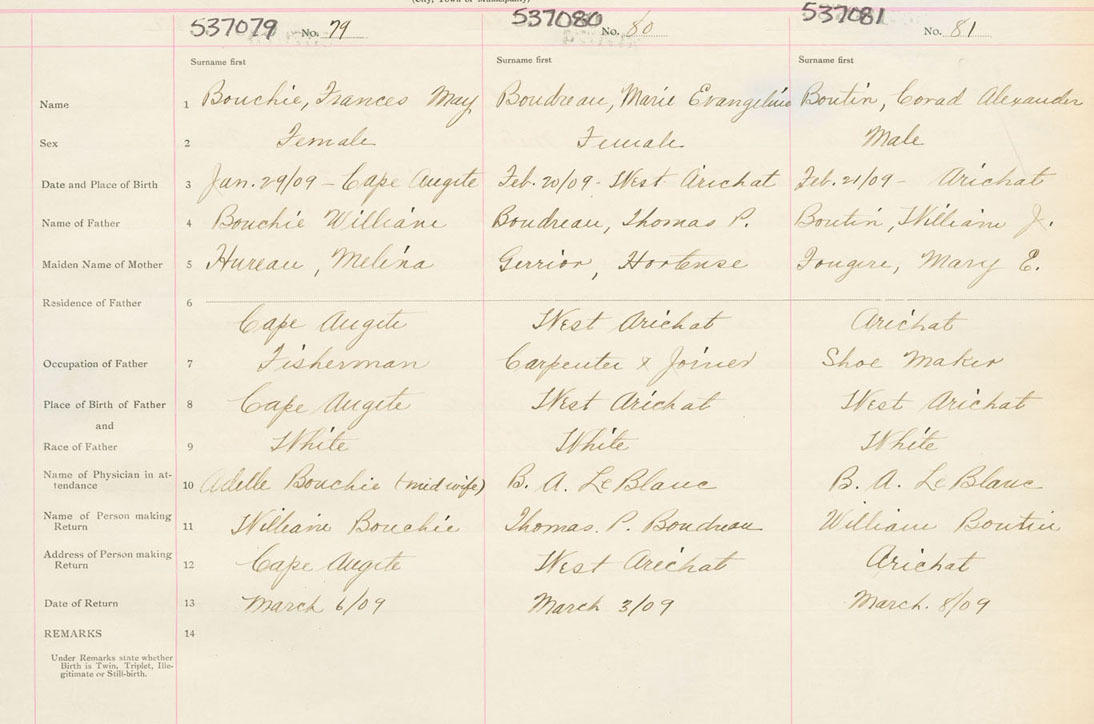 (City, Town or Municipality)
537079 No. 79 537080 No. 80 537081 No. 81
Surname first Surname first Surname first
Name 1 Bouchie, Frances May Boudreau, Marie Evangeline Boutin, Corad Alexander
Sex 2 Female Female Male
Date and Place of Birth 3 Jan. 29/09 - Cape Augite Feb. 20/09 - West Arichat Feb. 21/09 - Arichat
Name of Father 4 Bouchie William Boudreau, Thomas P. Boutin, William J.
Maiden Name of Mother 5 Hureau, Melina Gerrior, Hortense Fougere, Mary E.
Residence of Father 6
Cape Augite West Arichat Arichat
Occupation of Father 7 Fisherman Carpenter & Joiner Shoe Maker
Place of Birth of Father 8 Cape Augite West Arichat West Arichat
and
Race of Father 9 White White White
Name of Physician in at-
tendance 10 Adelle Bouchie (midwife) B. A. LeBlanc B. A. LeBlanc
Name of Person making
Return 11 William Bouchie Thomas. P. Boudreau William Boutin
Address of Person making
Return 12 Cape Augite West Arichat Arichat
Date of Return 13 March 6/09 March 3/09 March. 8/09
REMARKS 14
Under Remarks state whether
Birth is Twin, Triplet, Ille-
gitimate or Still-birth.